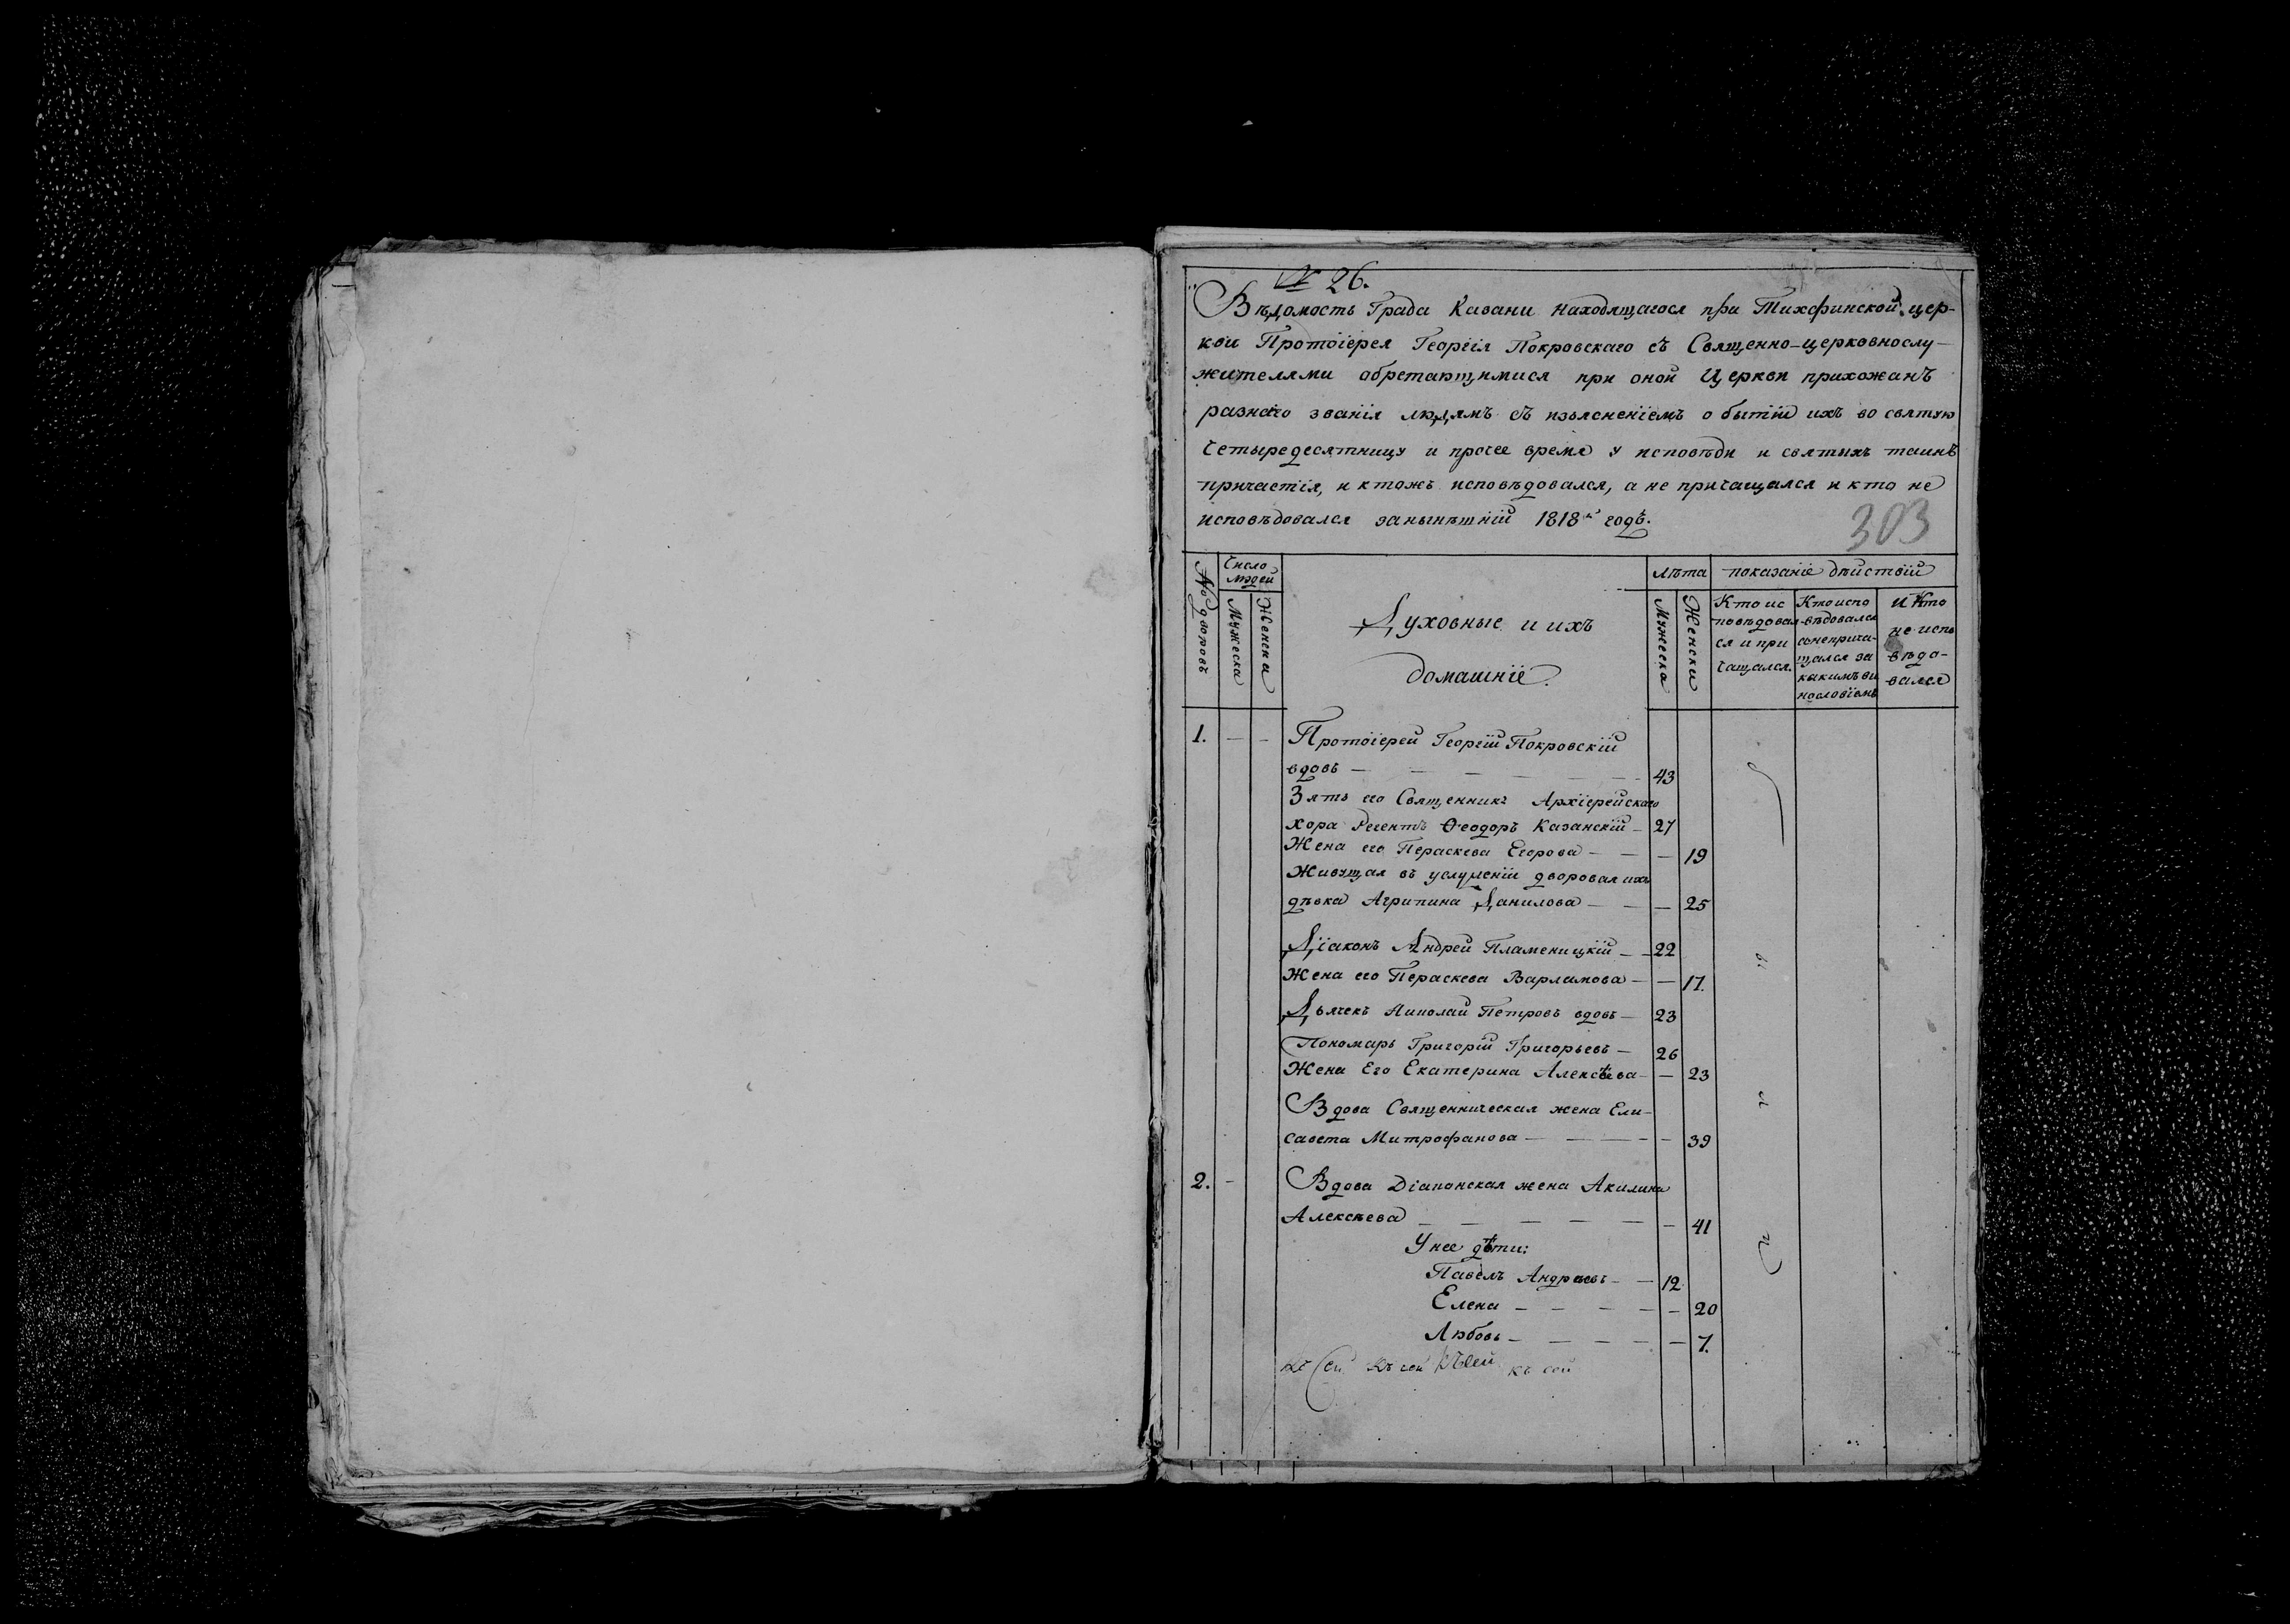 № 26.
Вѣдомость Града Казани находящагося при Тихфинской цер-
кви Протоіерея Георгія Покровскаго съ Священно-церковнослу-
жителями обретающимися при оной Церкви прихожанъ
разнаго званія людямъ съ изъясненіемъ о бытіи ихъ во святую
Четыредесятницу и протчее время у исповѣди и святыхъ таинъ
причастія, и ктожъ исповѣдовался, а не причащался и кто не
исповѣдовался занынѣшній 1818й годъ.
303
№ дворовъ
Число людей
Мужеска
Женска
Духовные и ихъ
домашніе.
лѣта
Мужеска
Женски
показаніе дѣйствій
Кто ис
повѣдовал
ся и при
чащался.
Кто испо
вѣдовался
анеприча-
щался за
какимъ ви
нословіемъ
И Кто
не испо
вѣдо-
вался
1. — — Протоіерей Георгій Покровскій
вдовъ — 43
Зять его Священникъ Архіерейскаго
хора Регентъ Ѳеодоръ Казанскій — 27
Жена его Пераскева Егорова — — 19
Живущая въ услуженіи дворовая ихъ
дѣвка Агрипина Данилова — — 25
Діаконъ Андрей Пламеницкій — 22
Жена его Пераскева Варламова — — 17.
Дьячекъ Николай Петровъ вдовъ — 23
Пономарь Григорій Григорьевъ — 26
Жена Его Екатерина Алексѣева — — 23
Вдова Священническая жена Ели-
савета Митрофанова — — 39
2. — Вдова Діаконская жена Акилина
Алексѣева — — 41
У нее дѣти:
Павелъ Андреевъ — 12
Елена — — 20
Любовь — — 7.
къ сей къ сей къ сей къ сей